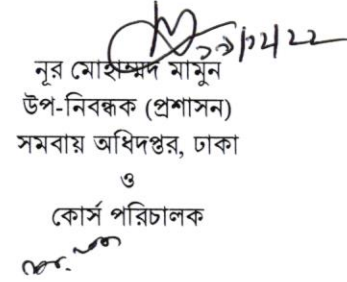 নূর মোহাম্মদ মামুন
উপ-নিবন্ধক (প্রশাসন)
সমবায় অধিদপ্তর, ঢাকা
ও
কোর্স পরিচালক